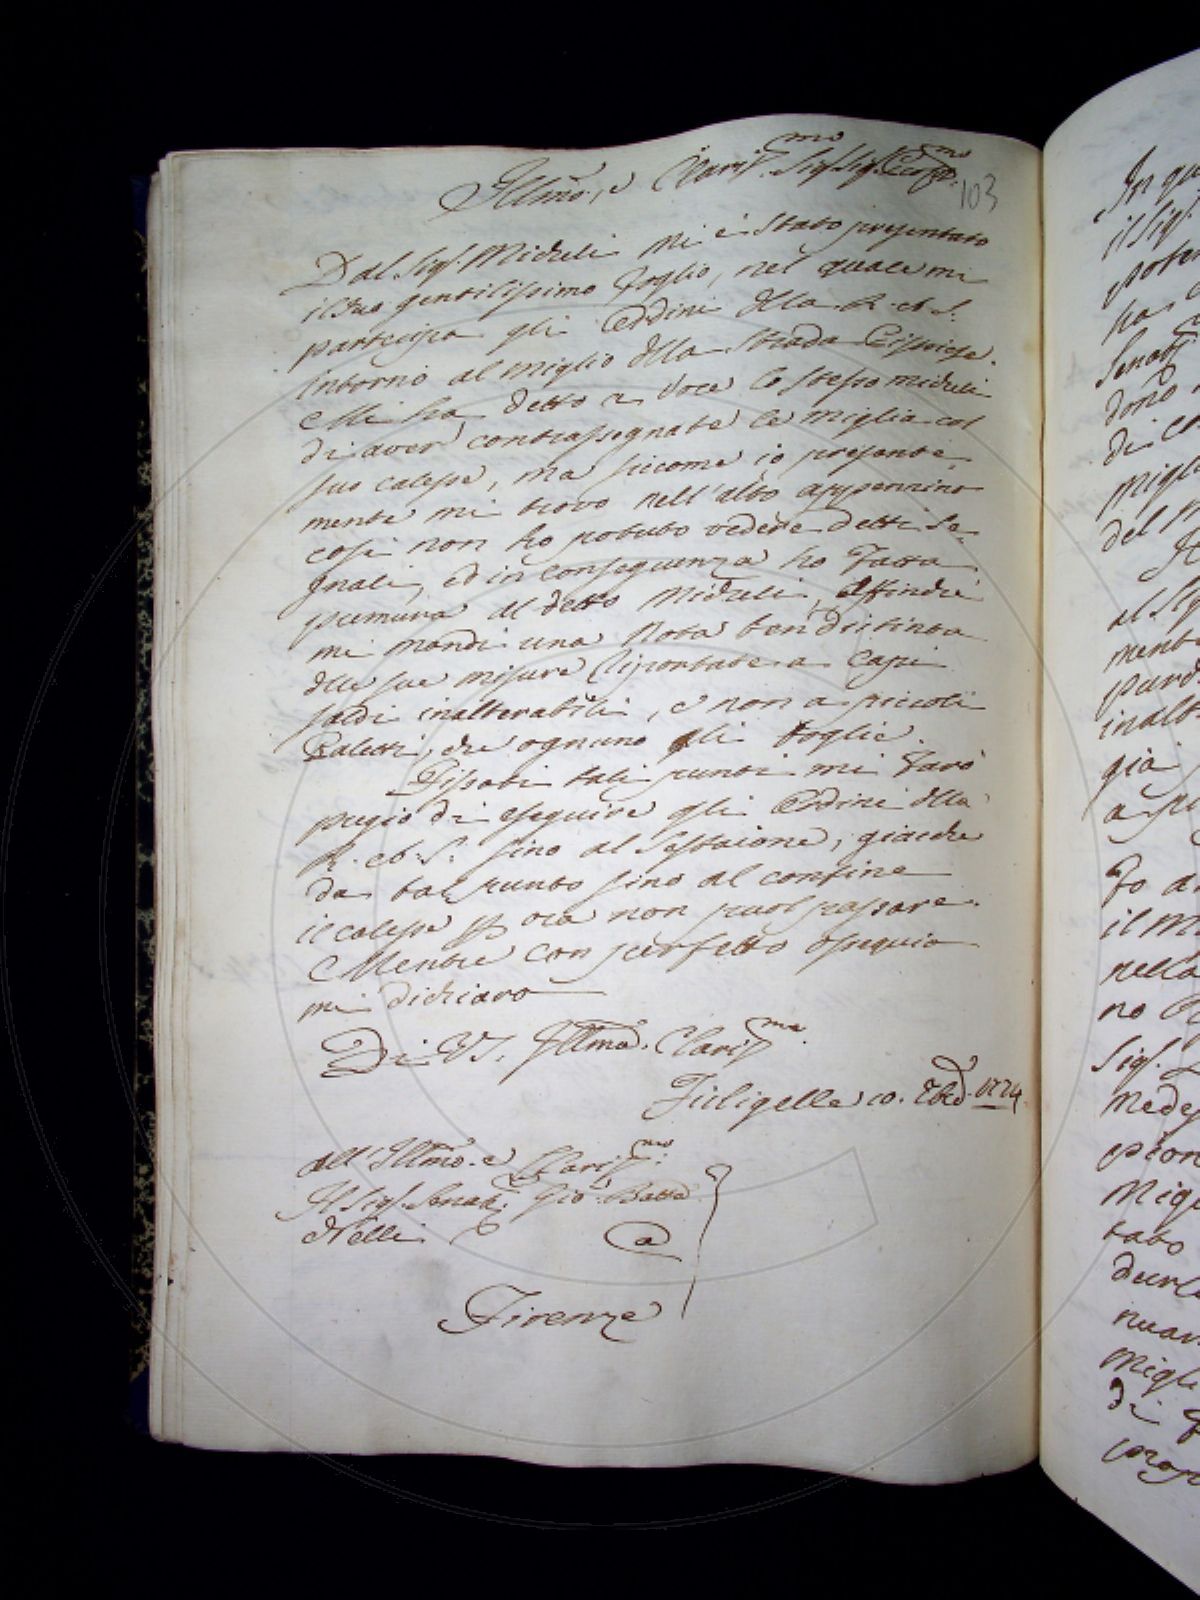 Illmo, e Clariss.mo Sig. Sig. 
103
Dal Sig. Miduli mi è stato presentato
il suo gentilissimo foglio, nel quale mi
partecipa gli Ordini della R. A. S.
intorno al miglio della Strada Pistoiese.
Mi ha detto a voce lo stesso Miduli
di aver contrassegnate le miglia col
suo calesse, ma siccome io presente-
mente mi trovo nell'alto appennino
così non ho potuto vedere detti Se-
gnali, ed in conseguenza ho fatta
premura al detto Miduli, affinchè
mi mandi una Nota ben distinta
delle sue misure riportate a Capi
saldi inalterabili, e non a piccoli
Paletti, che ognuno gli toglie.
Fissati tali punti mi farò
pregio di eseguire gli Ordini della
R. A. S. sino al Sestaione, giacchè
da tal punto sino al confine
il calesse per ora non puol passare.
Mentre con perfetto ossequio
mi dichiaro
Di VS. Illma. Clariss.ma
10. 1774
All'Illmo. e Clariss.mo
Il Sig. Senat. Gio. Batta
Nelli
a
Firenze
In qu
il Sig.
poter
ha
Senat
dono
di co
migl
del M
al Sig
mente
inalt
già
a pi
il M
nella
no
Sig.
Mede
pion
Migl
tato
nuar
Migl
di
prop